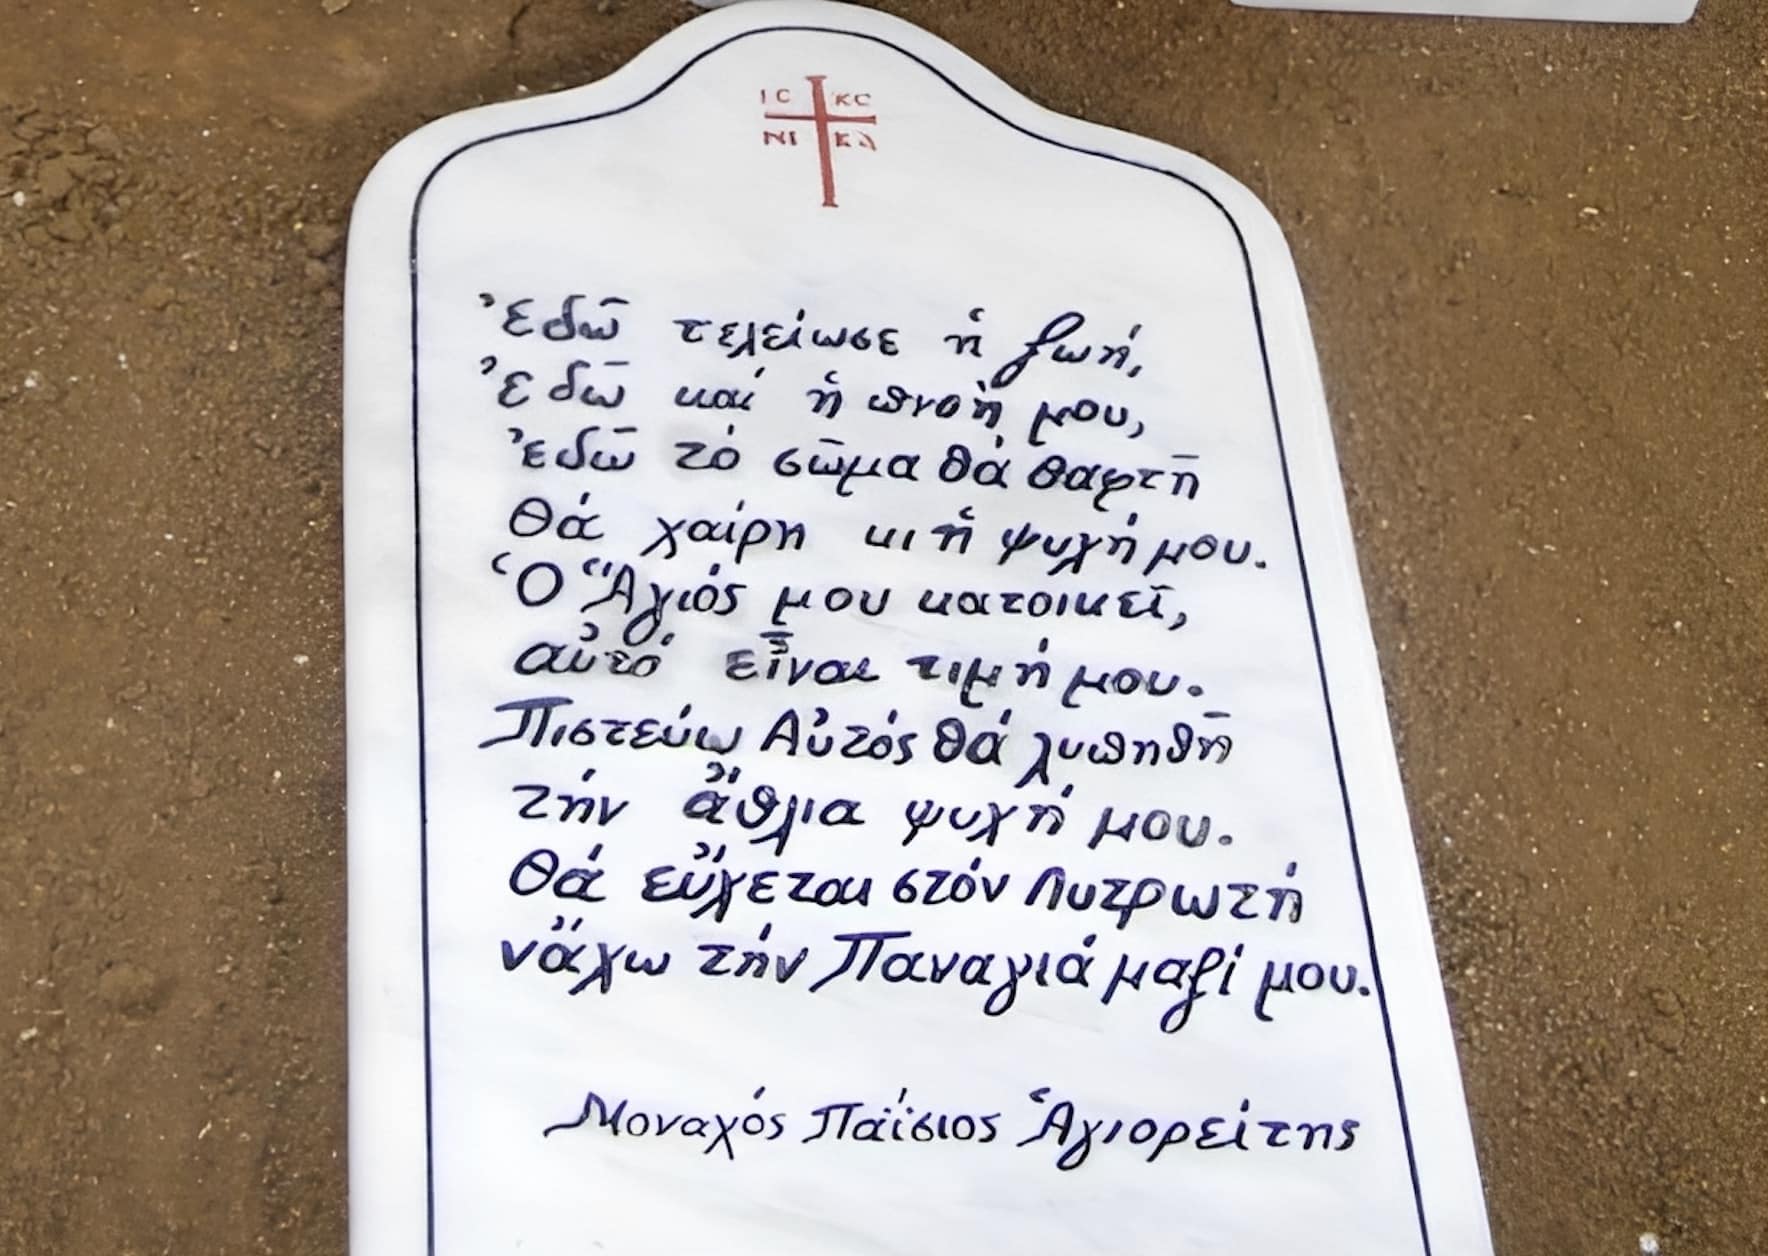 ΙC ΚC
ΝΙ ΚΑ
Ἐδῶ τελείωσε ἡ ζωή,
Ἐδῶ καί ἡ πνοὴ μου,
ἐδῶ τό σῶμα θά θαφτῆ
Θά χαίρη κι ἡ ψυχή μου.
Ὁ Ἅγιός μου κατοικεῖ,
αὐτό εἶναι τιμή μου.
Πιστεύω Αὐτός θά λυπηθῆ
τήν ἄθλια ψυχή μου.
Θά εὔχεται στόν Λυτρωτή
νἄχω τήν Παναγιά μαζί μου.
Μοναχός Παΐσιος Ἁγιορείτης